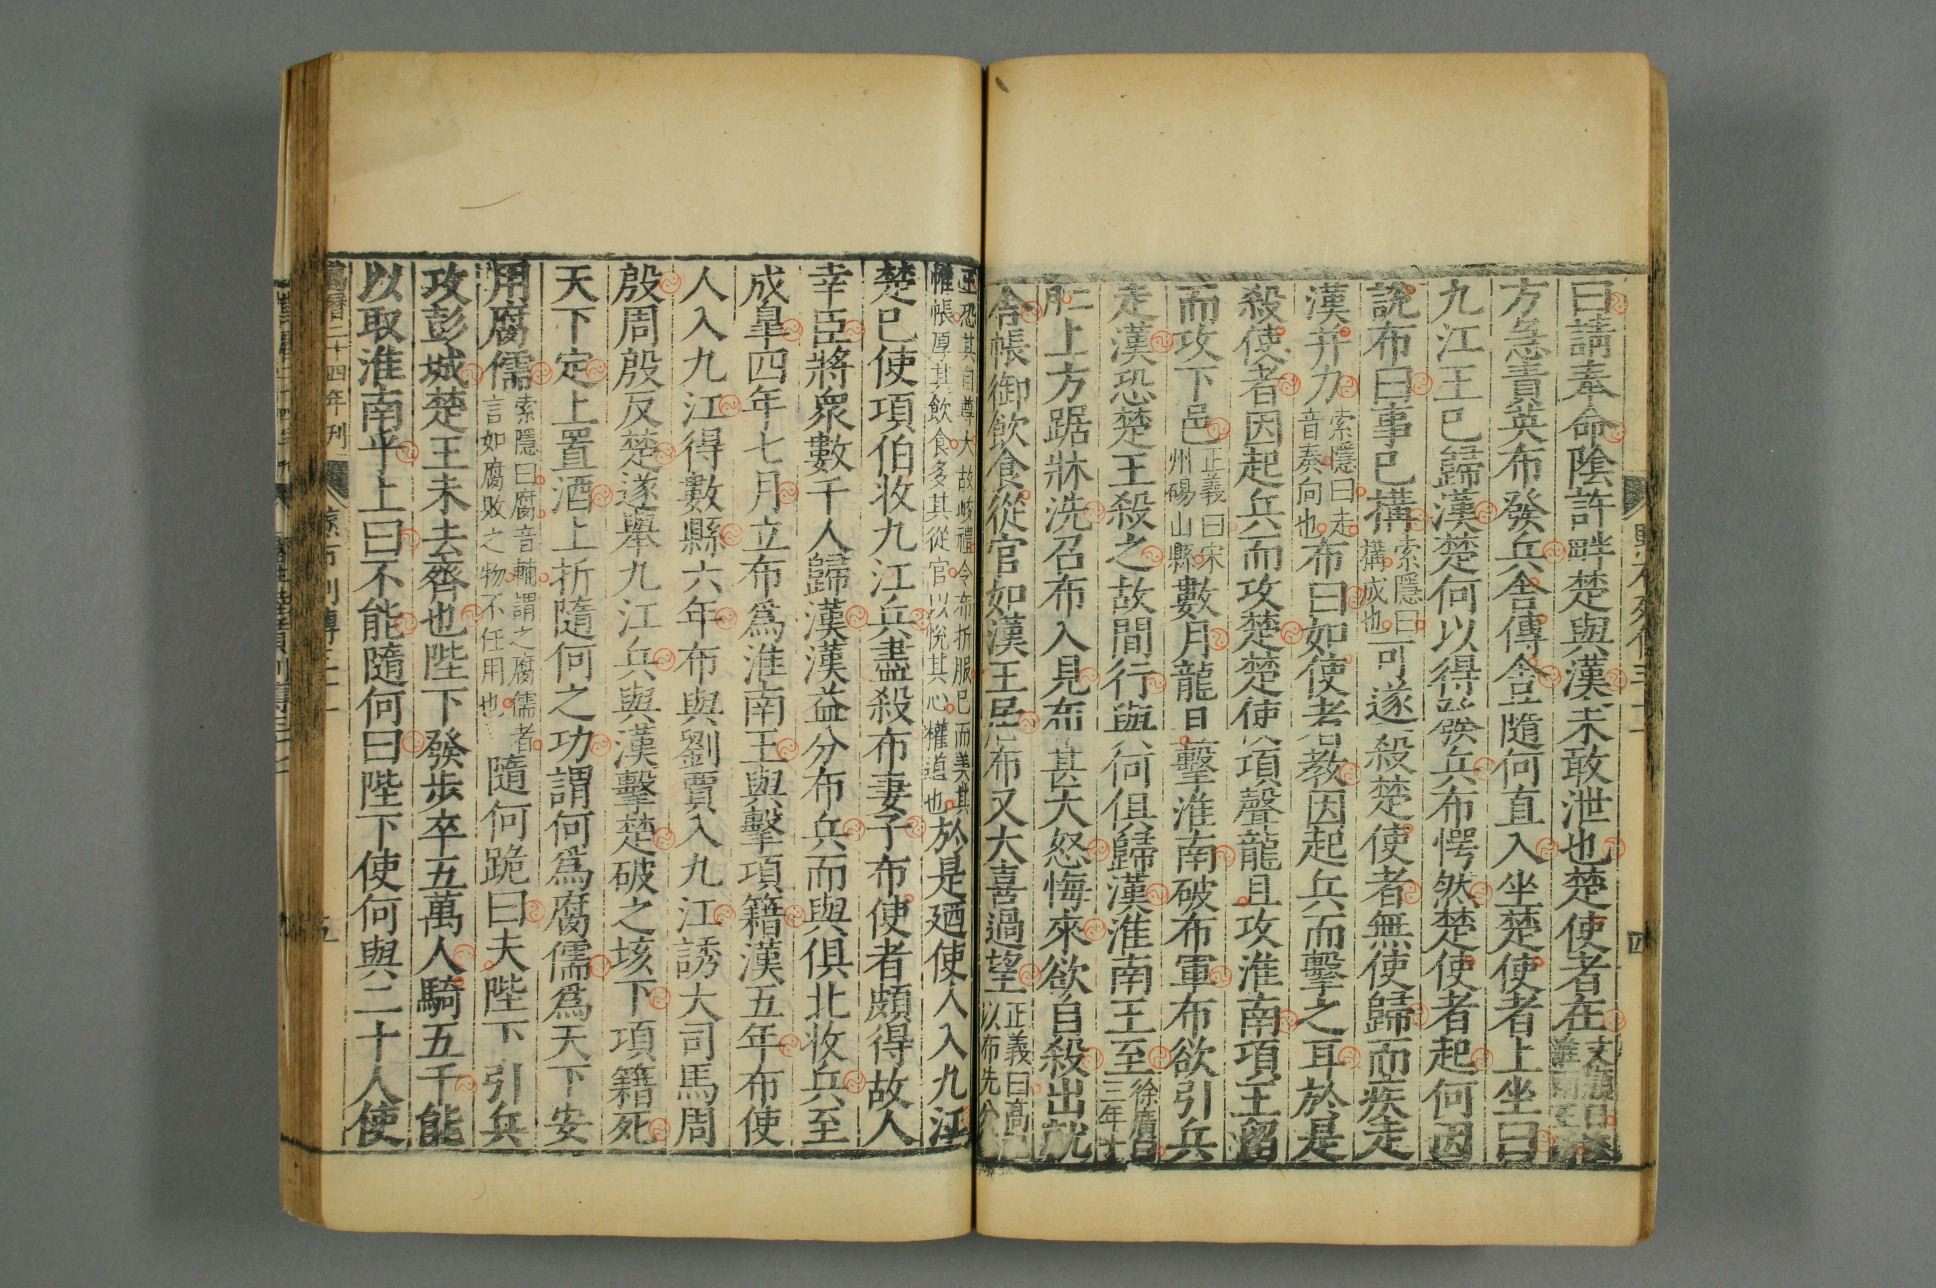 曰請奉命陰許畔楚與漢未敢泄也楚使者在文穎曰
方急責英布發兵舍傳舍隨何直入坐楚使者上坐曰
九江王已歸漢楚何以得發兵布愕然楚使者起何因
說布曰事已搆索隱曰搆成也可遂殺楚使者無使歸而疾走
漢并力索隱曰走音奏向也布曰如使者教因起兵而擊之耳於是
殺使者因起兵而攻楚楚使項聲龍且攻淮南項王留
而攻下邑正義曰宋州碭山縣數月龍且擊淮南破布軍布欲引兵
走漢恐楚王殺之故間行與何俱歸漢淮南王至徐廣曰三年十
上方踞牀洗召布入見布甚大怒悔來欲自殺出就
舍帳御飲食從官如漢王居布又大喜過望正義曰高以布先分
王恐其自尊大故峻禮令布折服已而美其帷帳厚其飲食多其從官以悅其心權道也於是廼使人入九江
楚已使項伯收九江兵盡殺布妻子布使者頗得故人
幸臣將眾數千人歸漢漢益分布兵而與俱北收兵至
成皐四年七月立布爲淮南王與擊項籍漢五年布使
人入九江得數縣六年布與劉賈入九江誘大司馬周
殷周殷反楚遂舉九江兵與漢擊楚破之垓下項籍死
天下定上置酒上折隨何之功謂何爲腐儒爲天下安
用腐儒索隱曰腐音輔謂之腐儒者言如腐敗之物不任用也隨何跪曰夫陛下引兵
攻彭城楚王未去齊也陛下發步卒五萬人騎五千能
以取淮南乎上曰不能隨何曰陛下使何與二十人使
萬曆二十四年刊 黥布列傳三十一 五